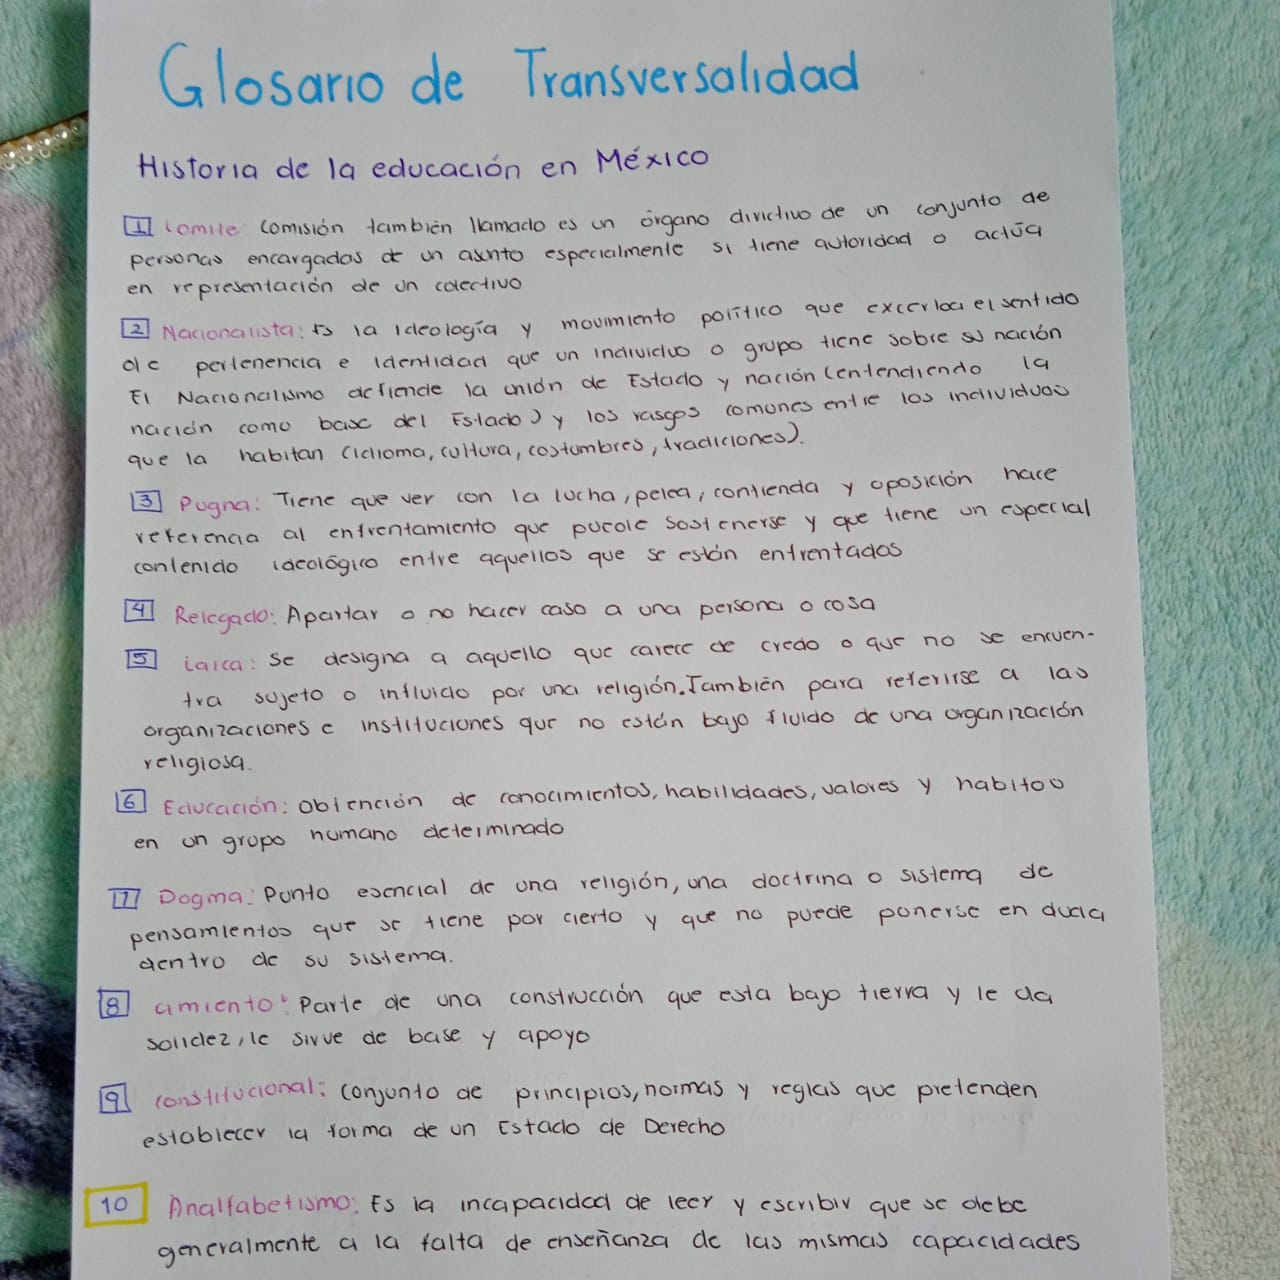 Glosario de Transversalidad
Historia de la educación en México
1 Comite: Comisión también llamado es un órgano divictivo de un conjunto de
personas encargadas de un asunto especialmente si tiene autoridad o actúa
en representación de un colectivo
2 Nacionalista: Es la Ideología y movimiento político que excerba el sentido
de pertenencia e Identidad que un individuo o grupo tiene sobre su nación
El Nacionalismo defiende la unión de Estado y nación (entendiendo la
nación como base del Estado) y los rasgos comunes entre los individuos
que la habitan (idioma, cultura, costumbres, tradiciones).
3 Pugna: Tiene que ver con la lucha, pelea, contienda y oposición hace
referencia al enfrentamiento que puede sostenerse y que tiene un especial
contenido ideológico entre aquellos que se están enfrentados
4 Relegado: Apartar o no hacer caso a una persona o cosa
5 Laica: Se designa a aquello que carece de credo o que no se encuen-
tra sujeto o influido por una religión. También para referirse a las
organizaciones e instituciones que no están bajo fluido de una organización
religiosa.
6 Educación: Obtención de conocimientos, habilidades, valores y habitos
en un grupo humano determinado
7 Dogma: Punto esencial de una religión, una doctrina o sistema de
pensamientos que se tiene por cierto y que no puede ponerse en duda
dentro de su sistema.
8 cimiento: Parte de una construcción que esta bajo tierra y le da
solidez, le sirve de base y apoyo
9 Constitucional: Conjunto de principios, normas y reglas que pretenden
establecer la forma de un Estado de Derecho
10 Analfabetismo: Es la incapacidad de leer y escribir que se debe
generalmente a la falta de enseñanza de las mismas capacidades